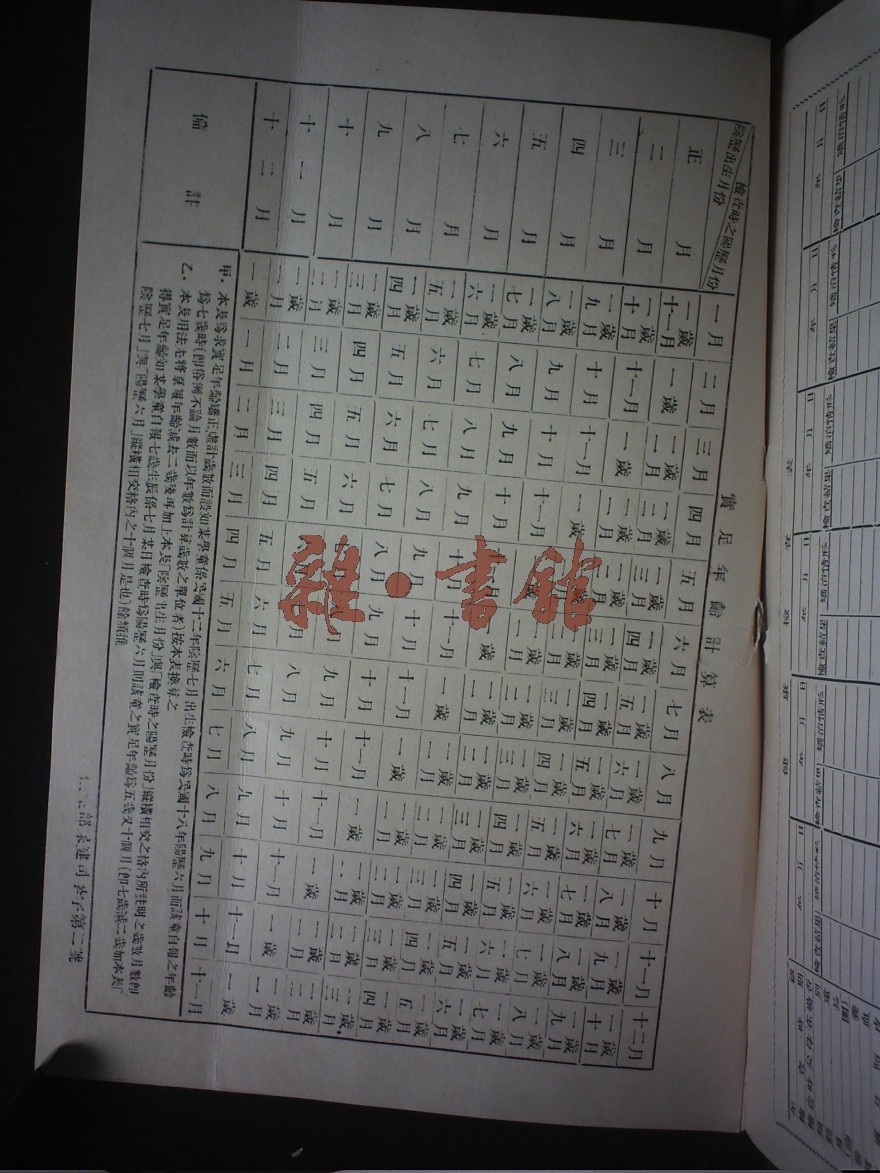 實足年齡計算表
檢查時之陽歷月份 一月 二月 三月 四月 五月 六月 七月 八月 九月 十月 十一月 十二月
陰歷出生月份
正月 一歲十一月 一歲 一歲一月 一歲二月 一歲三月 一歲四月 一歲五月 一歲六月 一歲七月 一歲八月 一歲九月 一歲十月
二月 一歲十月 十一月 一歲 一歲一月 一歲二月 一歲三月 一歲四月 一歲五月 一歲六月 一歲七月 一歲八月 一歲九月
三月 一歲九月 十月 十一月 一歲 一歲一月 一歲二月 一歲三月 一歲四月 一歲五月 一歲六月 一歲七月 一歲八月
四月 一歲八月 九月 十月 十一月 一歲 一歲一月 一歲二月 一歲三月 一歲四月 一歲五月 一歲六月 一歲七月
五月 一歲七月 八月 九月 十月 十一月 一歲 一歲一月 一歲二月 一歲三月 一歲四月 一歲五月 一歲六月
六月 一歲六月 七月 八月 九月 十月 十一月 一歲 一歲一月 一歲二月 一歲三月 一歲四月 一歲五月
七月 一歲五月 六月 七月 八月 九月 十月 十一月 一歲 一歲一月 一歲二月 一歲三月 一歲四月
八月 一歲四月 五月 六月 七月 八月 九月 十月 十一月 一歲 一歲一月 一歲二月 一歲三月
九月 一歲三月 四月 五月 六月 七月 八月 九月 十月 十一月 一歲 一歲一月 一歲二月
十月 一歲二月 三月 四月 五月 六月 七月 八月 九月 十月 十一月 一歲 一歲一月
十一月 一歲一月 二月 三月 四月 五月 六月 七月 八月 九月 十月 十一月 一歲
十二月 一歲 一月 二月 三月 四月 五月 六月 七月 八月 九月 十月 十一月
備註
甲．本表爲求實足年齡矯正虛計歲數而設如某學童係民國十二年陰歷七月出生檢查時爲民國十八年陽歷六月而該童自報之年齡
爲七歲時(卽俗例不論月數而以年數爲計算歲數之單位者)按本表換算之
乙．本表用法先將原報年齡減去二歲後再加上本表「陰歷出生月份」與「檢查時之陽歷月份」縱橫相交之格內所註明之歲數月數卽
得實足年齡如某學童自報七歲生長係七月某日檢查時爲陽歷六月則該童之實足年齡爲五歲又十個月(卽七歲減二歲加本表「
陰歷七月」與「陽歷六月」縱橫相交格內之十個月是也)餘類推
雜·書館